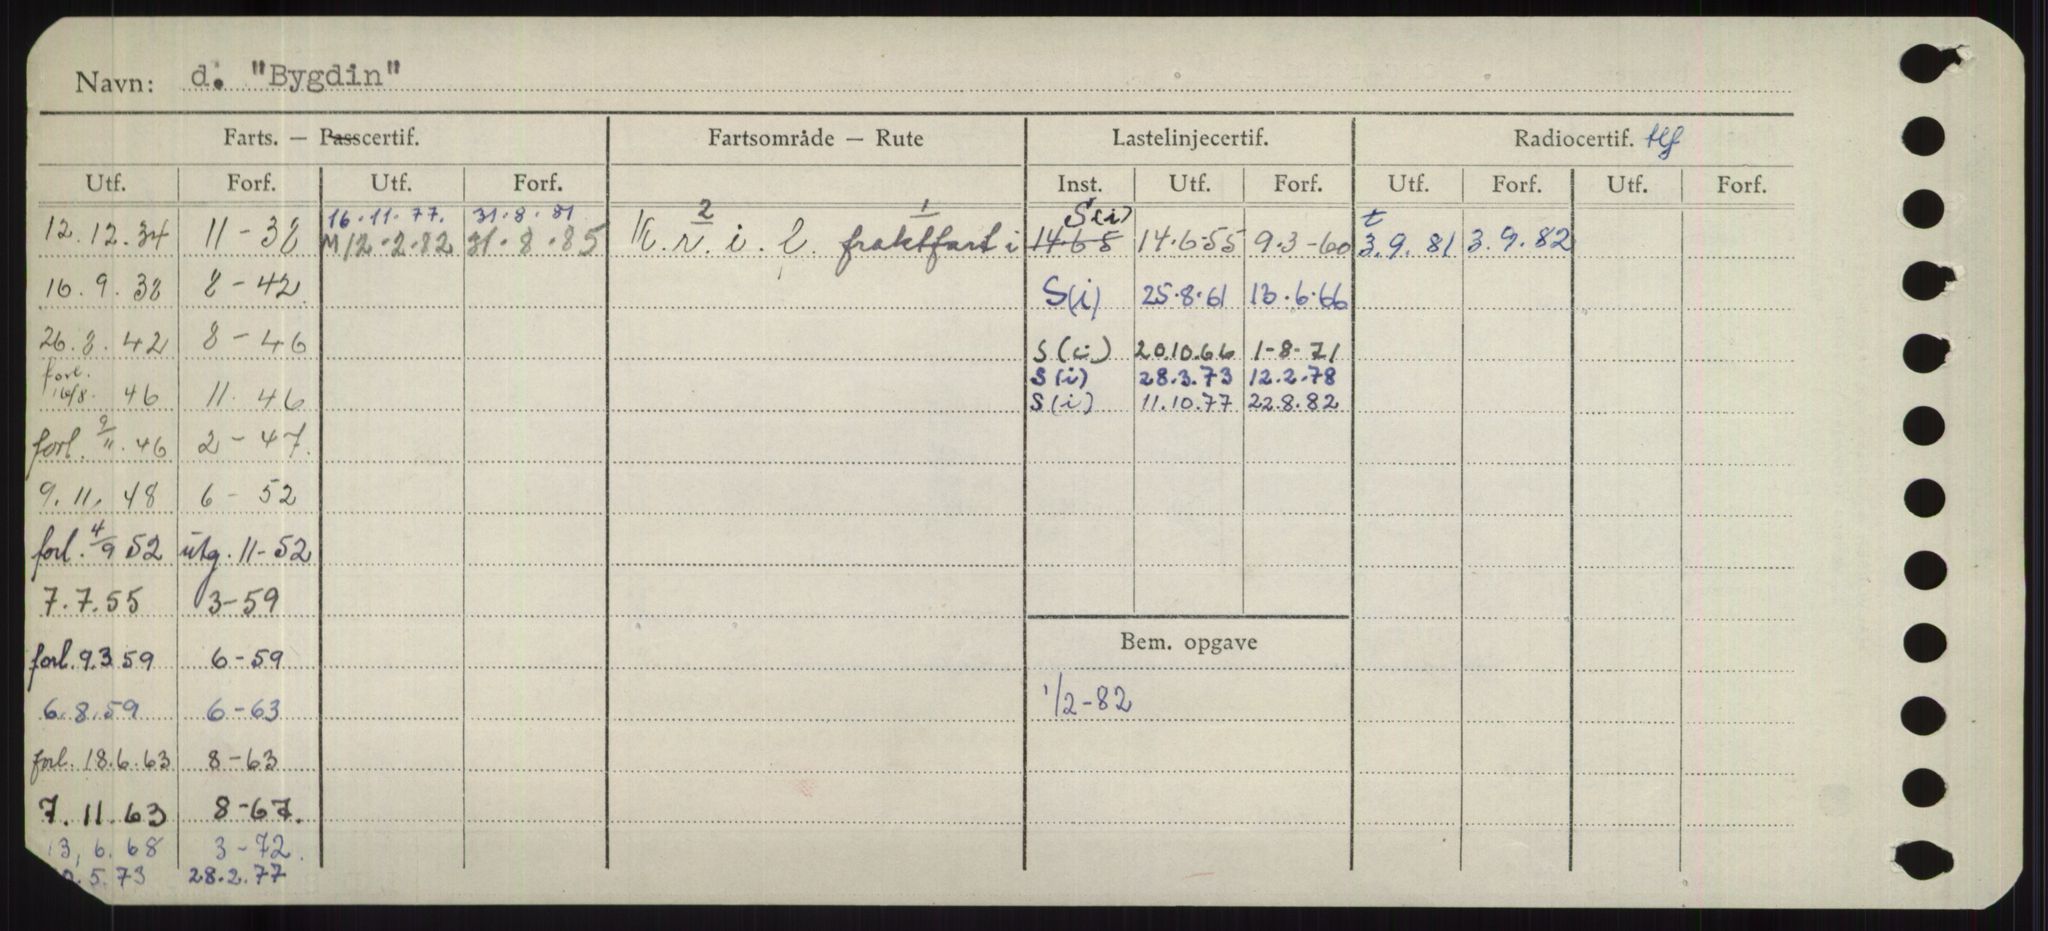 Navn: d. "Bygdin"
Farts. — Passcertif. Fartsområde — Rute Lastelinjecertif. Radiocertif. tlf
Utf. Forf. Utf. Forf. Inst. Utf. Forf. Utf. Forf. Utf. Forf.
16.11.77. 31.8.81 2 1 S(i) t
12.12.34 11-38 M12-2-82 31.8.85 K.r.i.l. fraktfart i 14.6.55 9.3-60 3.9.81 3.9.82
16.9.38 8-42 S(i) 25.8.61 13.6.66
26.8.42 8-46 S(i) 20.10.66 1-8-71
forl. 16/8. 46 11.46 S(i) 28.3.73 12.2.78
S(i) 11.10.77 22.8.82
forl. 9/11.46 2-47.
9.11.48 6-52
forl. 4/9 52 utg. 11-52
7.7.55 3-59
Bem. opgave
forl. 9.3.59 6-59
6.8.59 6-63 1/2-82
forl. 18.6.63 8-63
7.11.63 8-67.
13,6.68 3-72.
.5.73 28.2.77